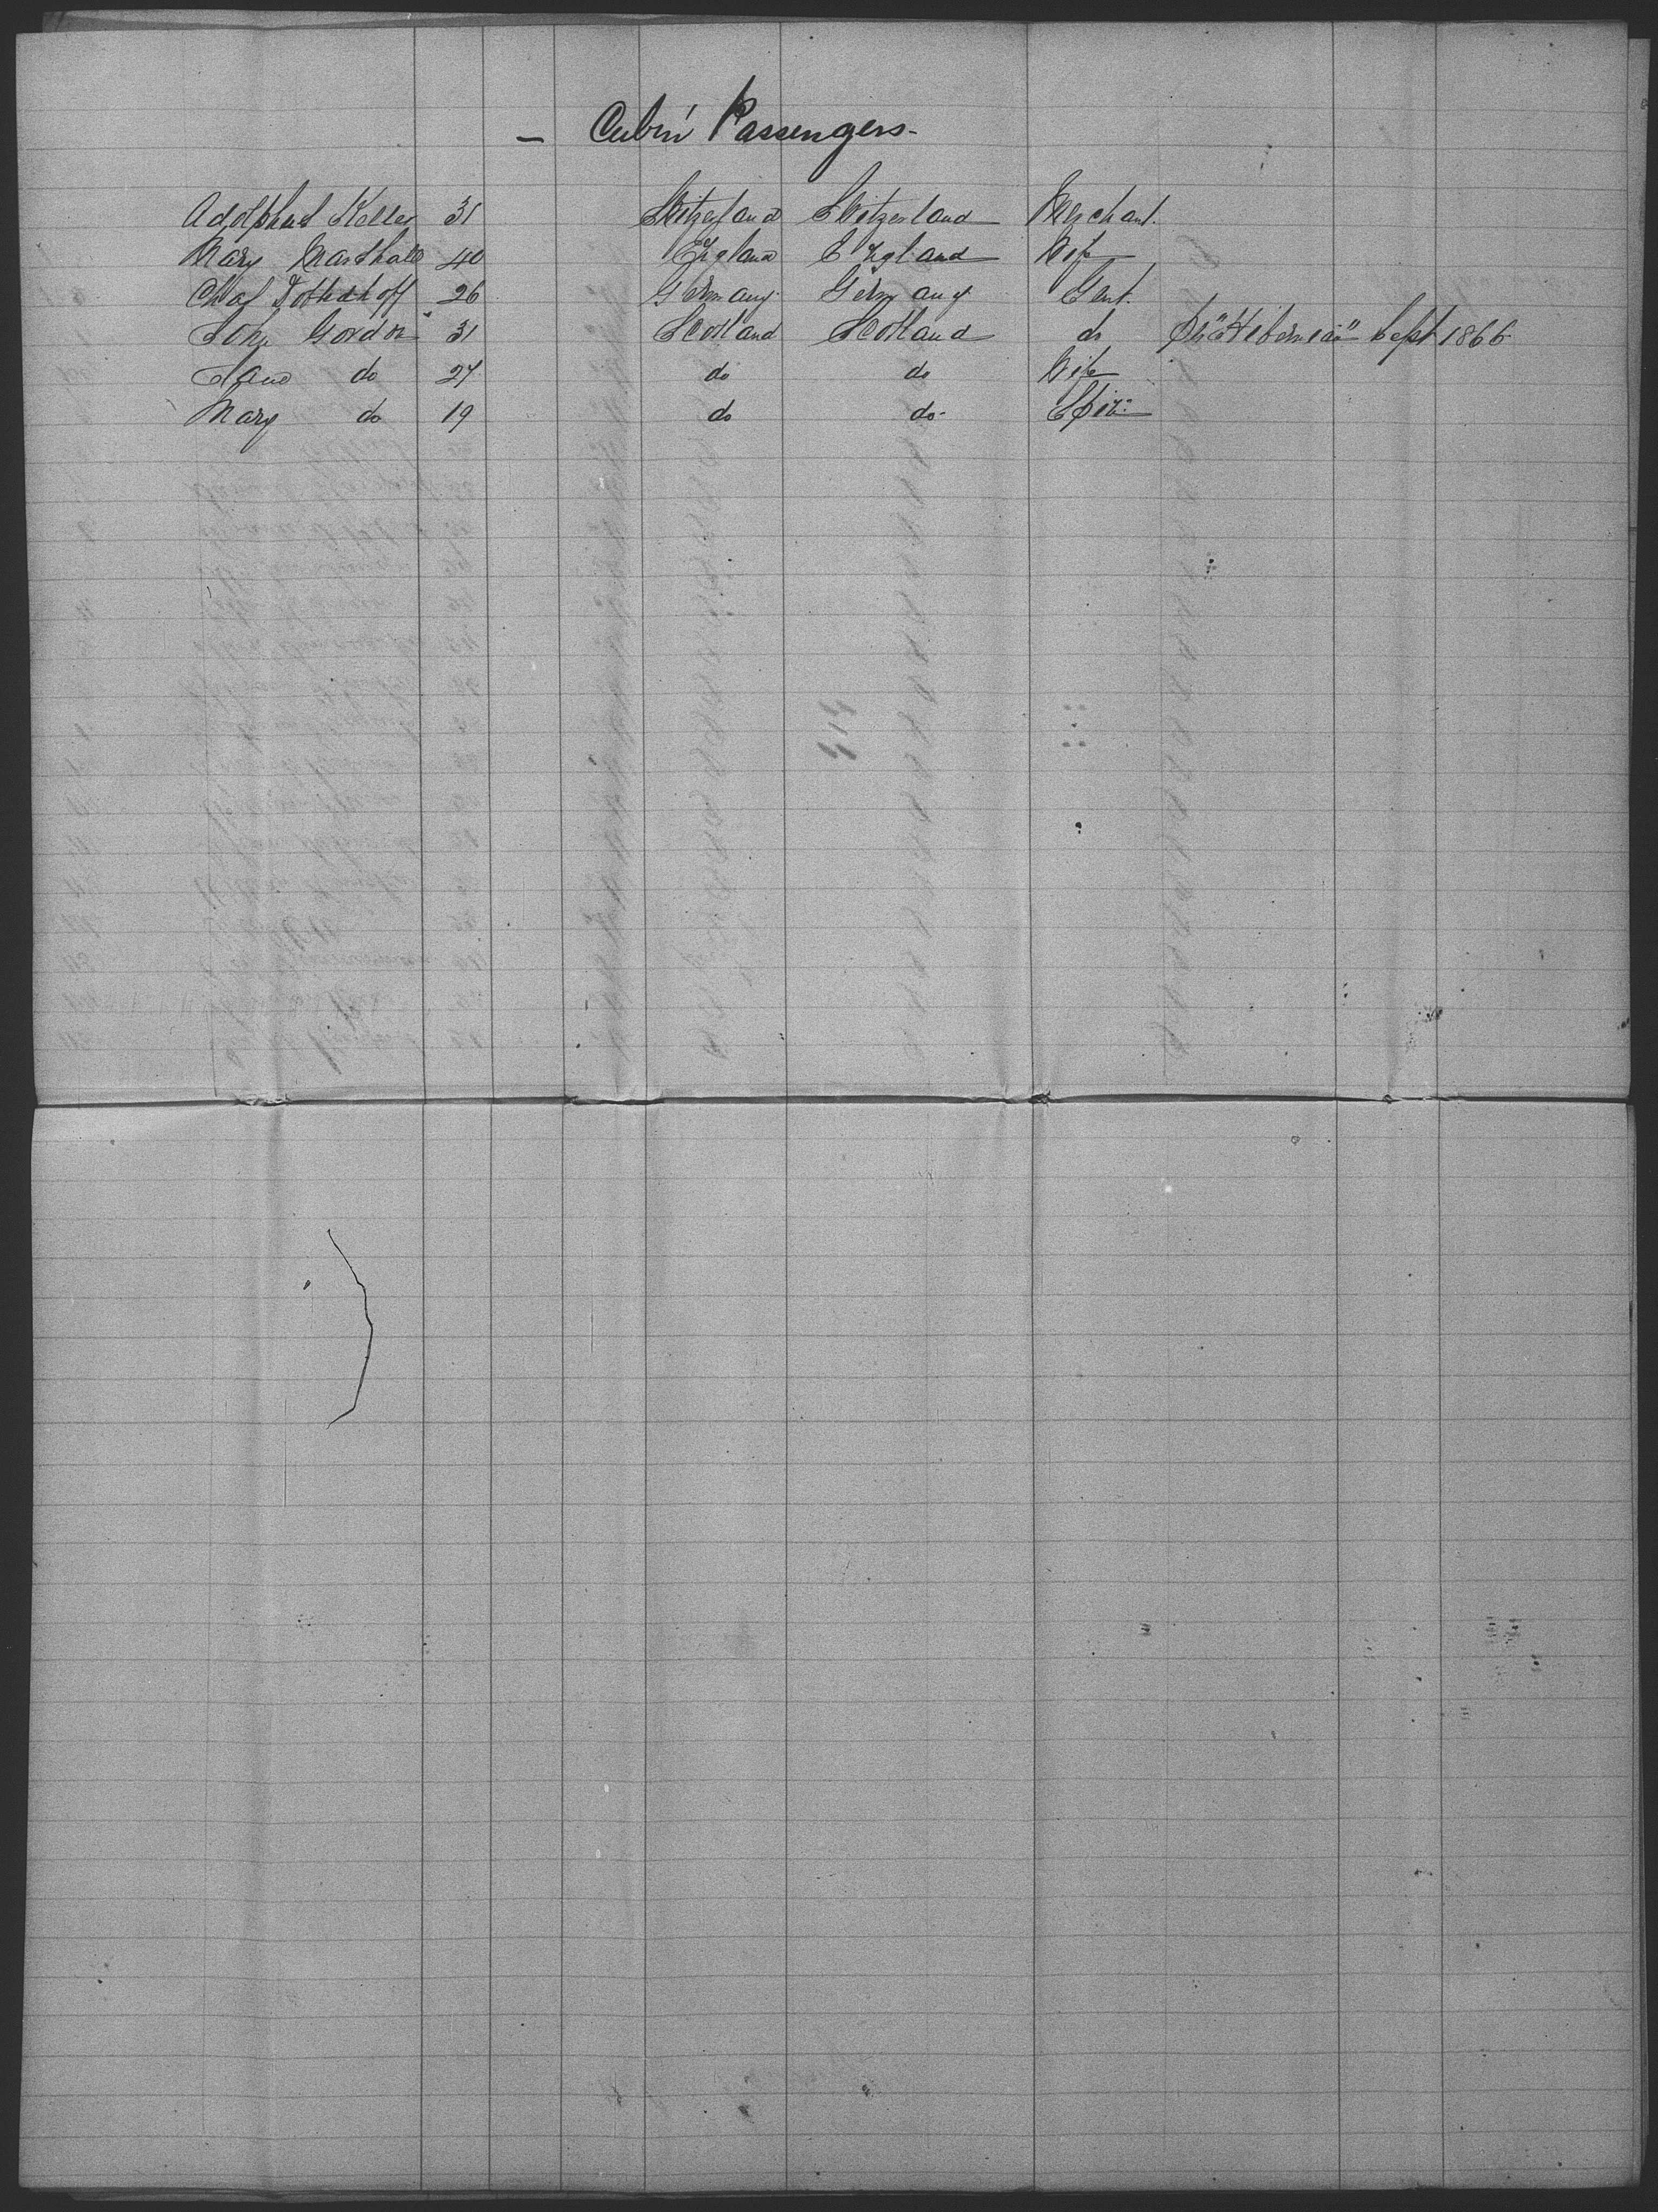 - Cabin Passengers -
Adolphus Keller 31 Switzerland Switzerland Merchant.
Mary Marshall 40 England England Wife
Chas 26 Germany Germany Gent.
John Gordon 31 Scotland Scotland do "Hibernian" Sept 1866
Jane do 27 do do Wife
Mary do 19 do do Spin: